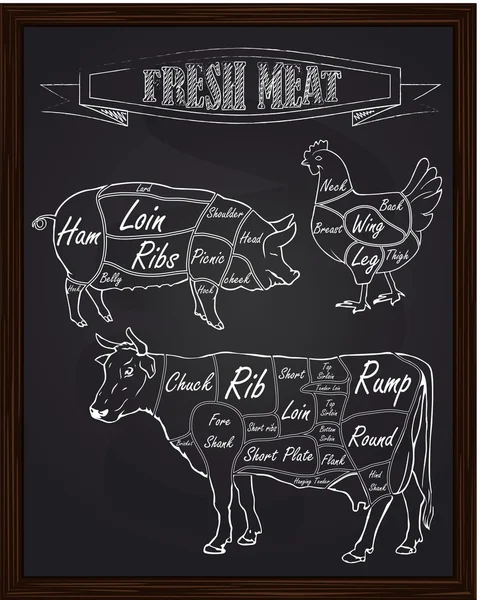 FRESH MEAT
Lard
Loin
Ribs
Ham
Belly
Hock
Shoulder
Head
Picnic
cheek
Hock
Neck
Back
Breast
Wing
Leg
Thigh
Chuck
Rib
Short
Loin
Top
Sirloin
Tender Loin
Top
Sirloin
Bottom
Sirloin
Rump
Round
Fore
Shank
Short ribs
Brisket
Short Plate
Flank
Hanging Tender
Hind
Shank